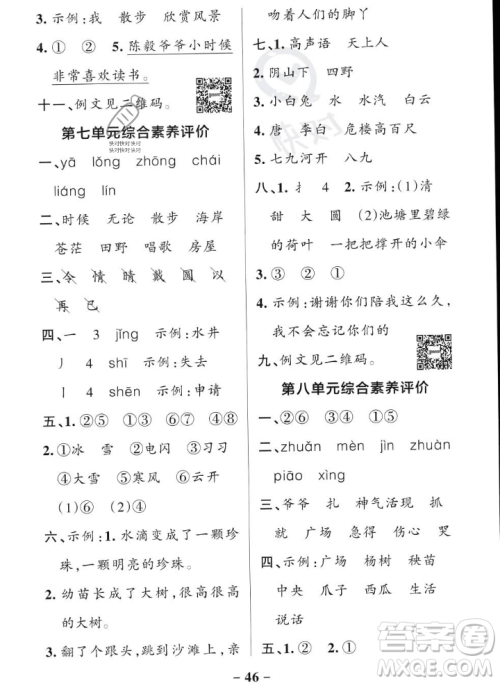 3. 示例:我 散步 欣赏风景
4. ① ② 5. 陈毅爷爷小时候
非常喜欢读书。
十一、例文见二维码。
第七单元综合素养评价
一、yā lǒng zhōng chái
liáng lín
二、时候 无论 散步 海岸
苍茫 田野 唱歌 房屋
三、令 情 晴 戴 圆 以
再 已
四、一 3 jǐng 示例:水井
丿 4 shī 示例:失去
丨 4 shēn 示例:申请
五、1. ①⑤ ②④ ③⑥
2. ①冰 雪 ②电闪 ③习习
④大雪 ⑤寒风 ⑥云开
(1)⑥ (2)①④
六、示例:1. 水滴变成了一颗珍
珠,一颗明亮的珍珠。
2. 幼苗长成了大树,高高的
大树。
3. 翻了个跟头,跳到沙滩上,亲
吻着人们的脚丫
七、1. 高声语 天上人
2. 阴山下 四野
3. 小白兔 水 水汽 白云
4. 唐 李白 危楼高百尺
5. 七九河开 八九雁来
八、(一)1. ④ 2. 示例:(1)清
甜 大 圆 (2)池塘里碧绿
的荷叶 一把把撑开的小伞
3. ①
(二)1. ③ 2. ①②④
3. ①②③
4. 示例:谢谢你们陪我这么久,
我不会忘记你们的
九、例文见二维码。
第八单元综合素养评价
一、②⑥ ③④ ①⑤
二、zhuǎn mèn jìn zhuàn
piāo xìng
三、爷爷 扎 神气活现 代
就 广场 急得 伤心 哭
四、示例:广场 杨树 杨梅
中央 爪子 西瓜 生活
说话
五、1. ② ① 2. ①
46